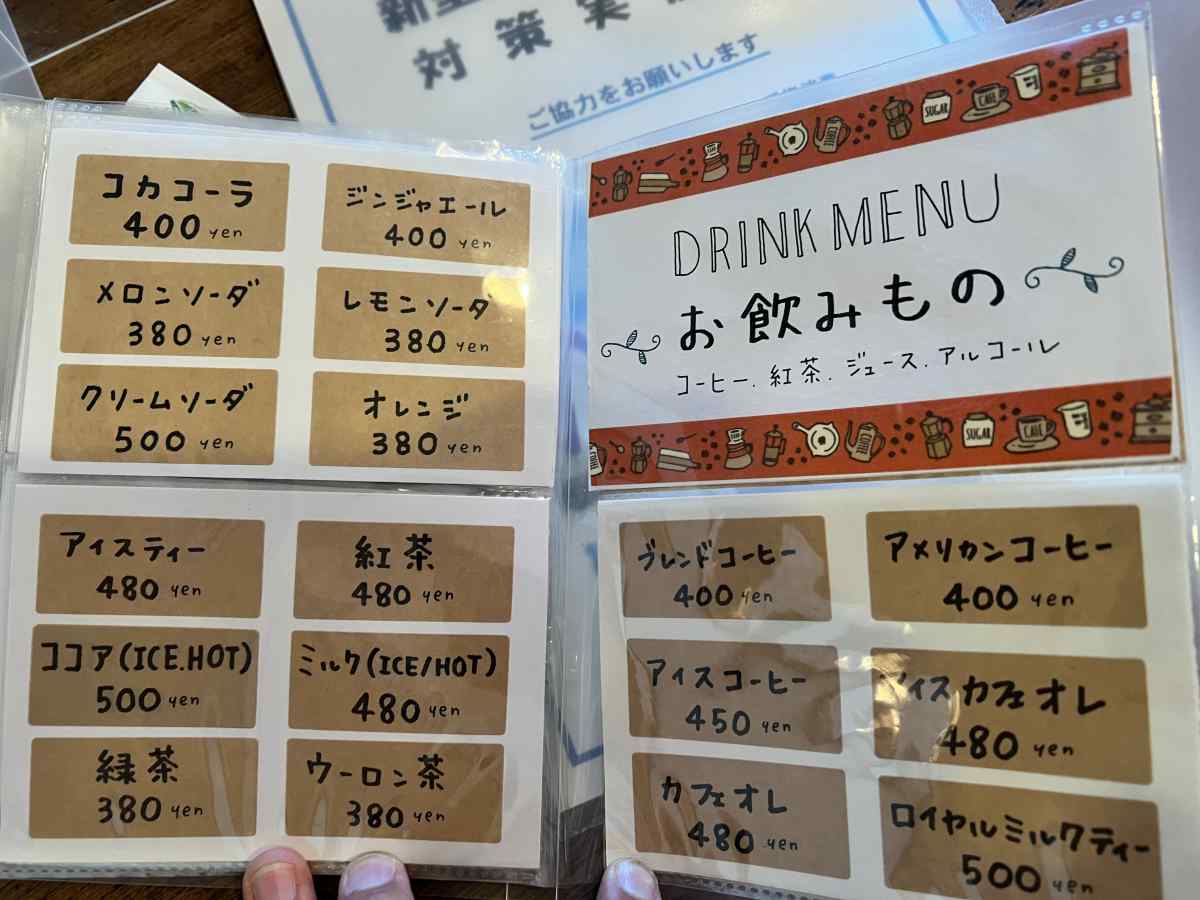 対策実
ご協力をお願いします
コカコーラ
400 yen
ジンジャエール
400 yen
メロンソーダ
380 yen
レモンソーダ
380 yen
クリームソーダ
500 yen
オレンジ
380 yen
アイスティー
480 yen
紅茶
480 yen
ココア(ICE.HOT)
500 yen
ミルク(ICE/HOT)
480 yen
緑茶
380 yen
ウーロン茶
380 yen
SUGAR
CAFE
DRINK MENU
お飲みもの
コーヒー.紅茶.ジュース.アルコール
SUGAR
CAFE
ブレンドコーヒー
400 yen
アメリカンコーヒー
400 yen
アイスコーヒー
450 yen
アイスカフェオレ
480 yen
カフェオレ
480 yen
ロイヤルミルクティー
500 yen